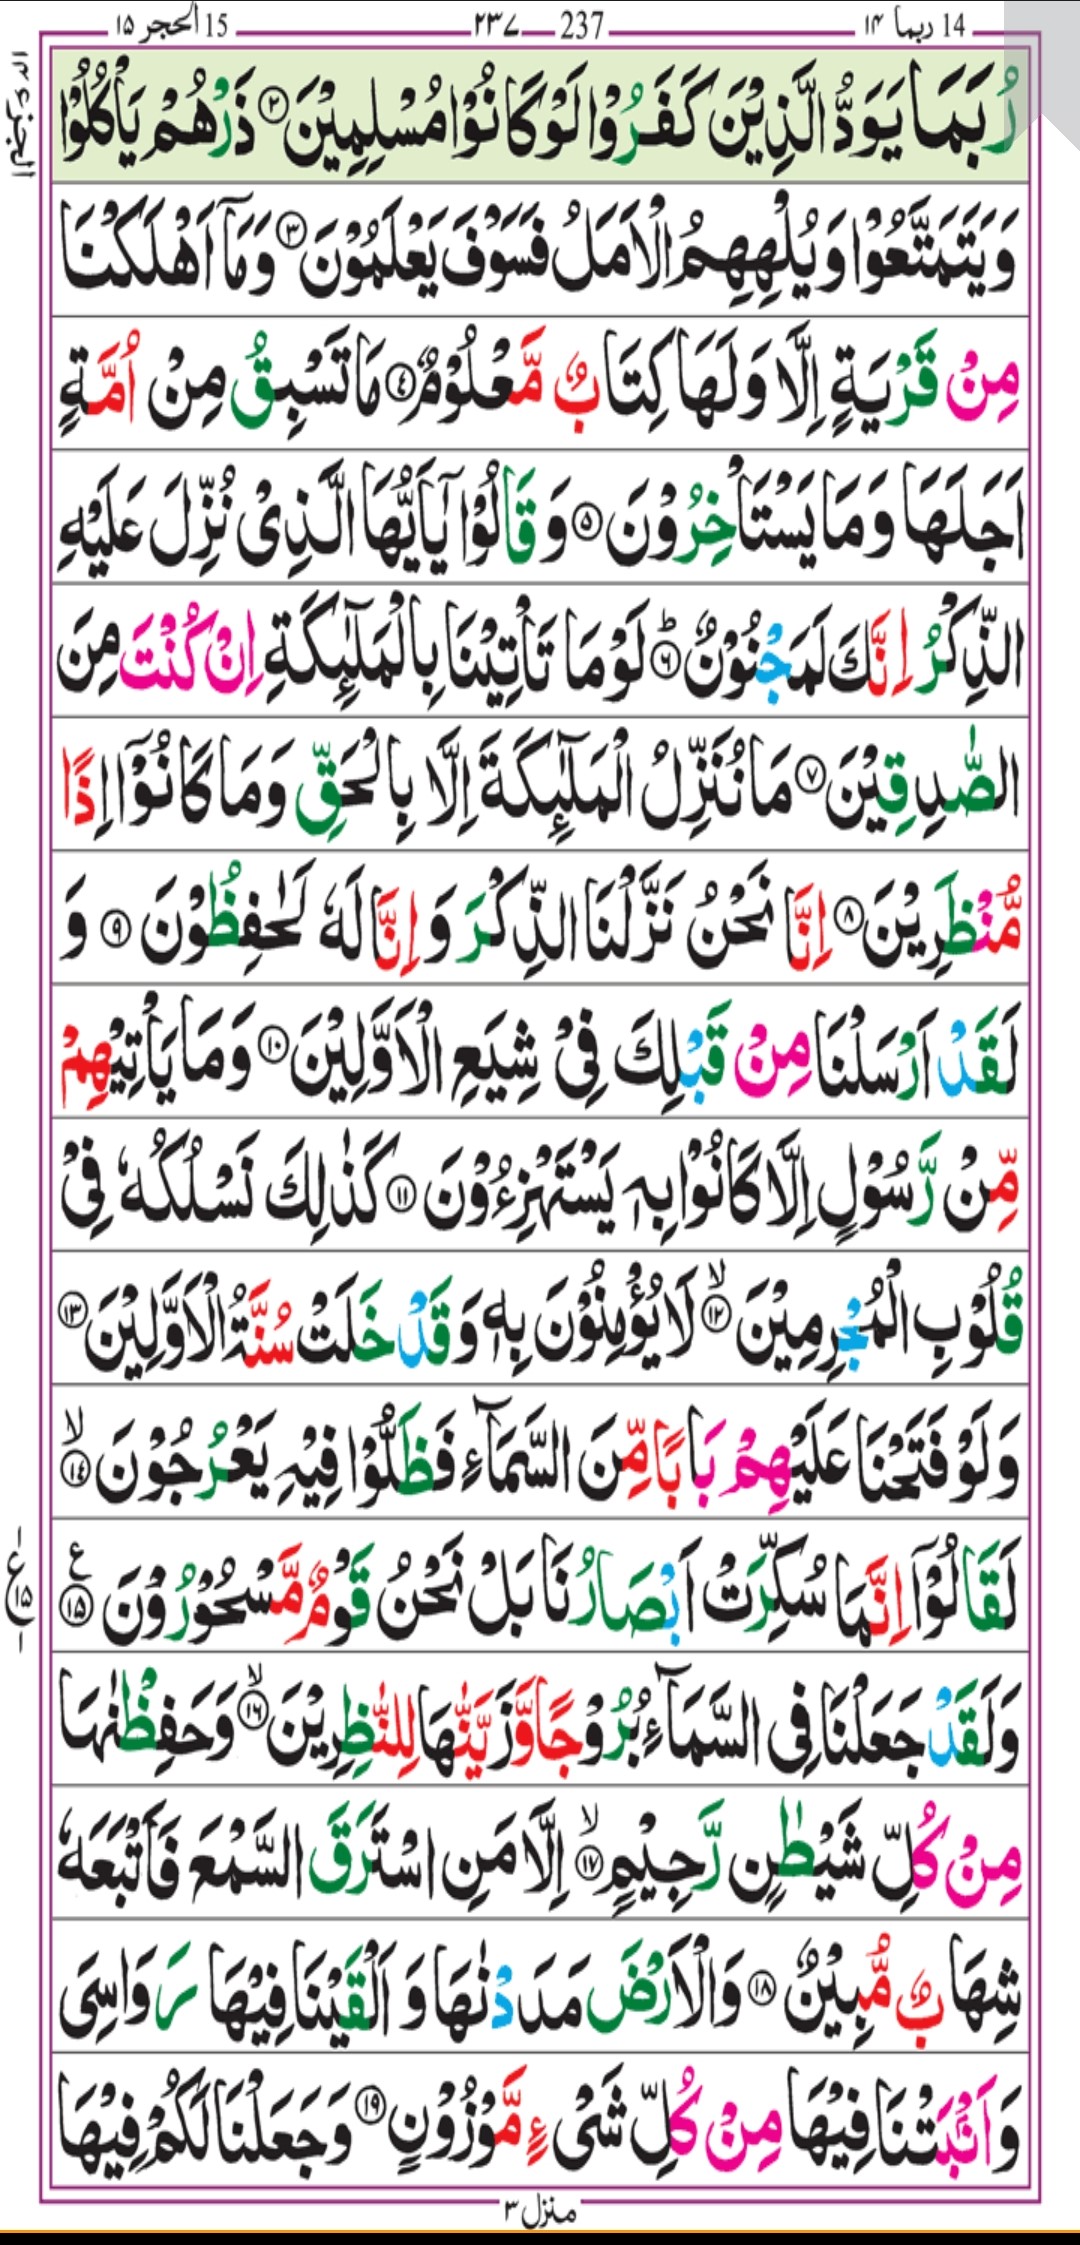 14 ربما ۱۴ 237 ۲۳۷ 15 الحجر ۱۵
رُبَمَا يَوَدُّ الَّذِيْنَ كَفَرُوْا لَوْ كَانُوْا مُسْلِمِيْنَ ﴿۲﴾ ذَرْهُمْ يَاْكُلُوْا
وَيَتَمَتَّعُوْا وَيُلْهِهِمُ الْاَمَلُ فَسَوْفَ يَعْلَمُوْنَ ﴿۳﴾ وَمَاۤ اَهْلَكْنَا
مِنْ قَرْيَةٍ اِلَّا وَلَهَا كِتَابٌ مَّعْلُوْمٌ ﴿۴﴾ مَا تَسْبِقُ مِنْ اُمَّةٍ
اَجَلَهَا وَمَا يَسْتَاْخِرُوْنَ ﴿۵﴾ وَقَالُوْا يٰۤاَيُّهَا الَّذِىْ نُزِّلَ عَلَيْهِ
الذِّكْرُ اِنَّكَ لَمَجْنُوْنٌ ؕ﴿۶﴾ لَوْ مَا تَاْتِيْنَا بِالْمَلٰٓئِكَةِ اِنْ كُنْتَ مِنَ
الصّٰدِقِيْنَ ﴿۷﴾ مَا نُنَزِّلُ الْمَلٰٓئِكَةَ اِلَّا بِالْحَقِّ وَمَا كَانُوْۤا اِذًا
مُّنْظَرِيْنَ ﴿۸﴾ اِنَّا نَحْنُ نَزَّلْنَا الذِّكْرَ وَاِنَّا لَهٗ لَحٰفِظُوْنَ ﴿۹﴾ وَ
لَقَدْ اَرْسَلْنَا مِنْ قَبْلِكَ فِىْ شِيَعِ الْاَوَّلِيْنَ ﴿۱۰﴾ وَمَا يَاْتِيْهِمْ
مِّنْ رَّسُوْلٍ اِلَّا كَانُوْا بِهٖ يَسْتَهْزِءُوْنَ ﴿۱۱﴾ كَذٰلِكَ نَسْلُكُهٗ فِىْ
قُلُوْبِ الْمُجْرِمِيْنَ ۙ﴿۱۲﴾ لَا يُؤْمِنُوْنَ بِهٖ وَقَدْ خَلَتْ سُنَّةُ الْاَوَّلِيْنَ ﴿۱۳﴾
وَلَوْ فَتَحْنَا عَلَيْهِمْ بَابًا مِّنَ السَّمَآءِ فَظَلُّوْا فِيْهِ يَعْرُجُوْنَ ۙ﴿۱۴﴾
لَقَالُوْۤا اِنَّمَا سُكِّرَتْ اَبْصَارُنَا بَلْ نَحْنُ قَوْمٌ مَّسْحُوْرُوْنَ ﴿۱۵﴾ ع
وَلَقَدْ جَعَلْنَا فِى السَّمَآءِ بُرُوْجًا وَّزَيَّنّٰهَا لِلنّٰظِرِيْنَ ۙ﴿۱۶﴾ وَحَفِظْنٰهَا
مِنْ كُلِّ شَيْطٰنٍ رَّجِيْمٍ ۙ﴿۱۷﴾ اِلَّا مَنِ اسْتَرَقَ السَّمْعَ فَاَتْبَعَهٗ
شِهَابٌ مُّبِيْنٌ ﴿۱۸﴾ وَالْاَرْضَ مَدَدْنٰهَا وَاَلْقَيْنَا فِيْهَا رَوَاسِىَ
وَاَنْۢبَتْنَا فِيْهَا مِنْ كُلِّ شَىْءٍ مَّوْزُوْنٍ ﴿۱۹﴾ وَجَعَلْنَا لَكُمْ فِيْهَا
منزل ۳